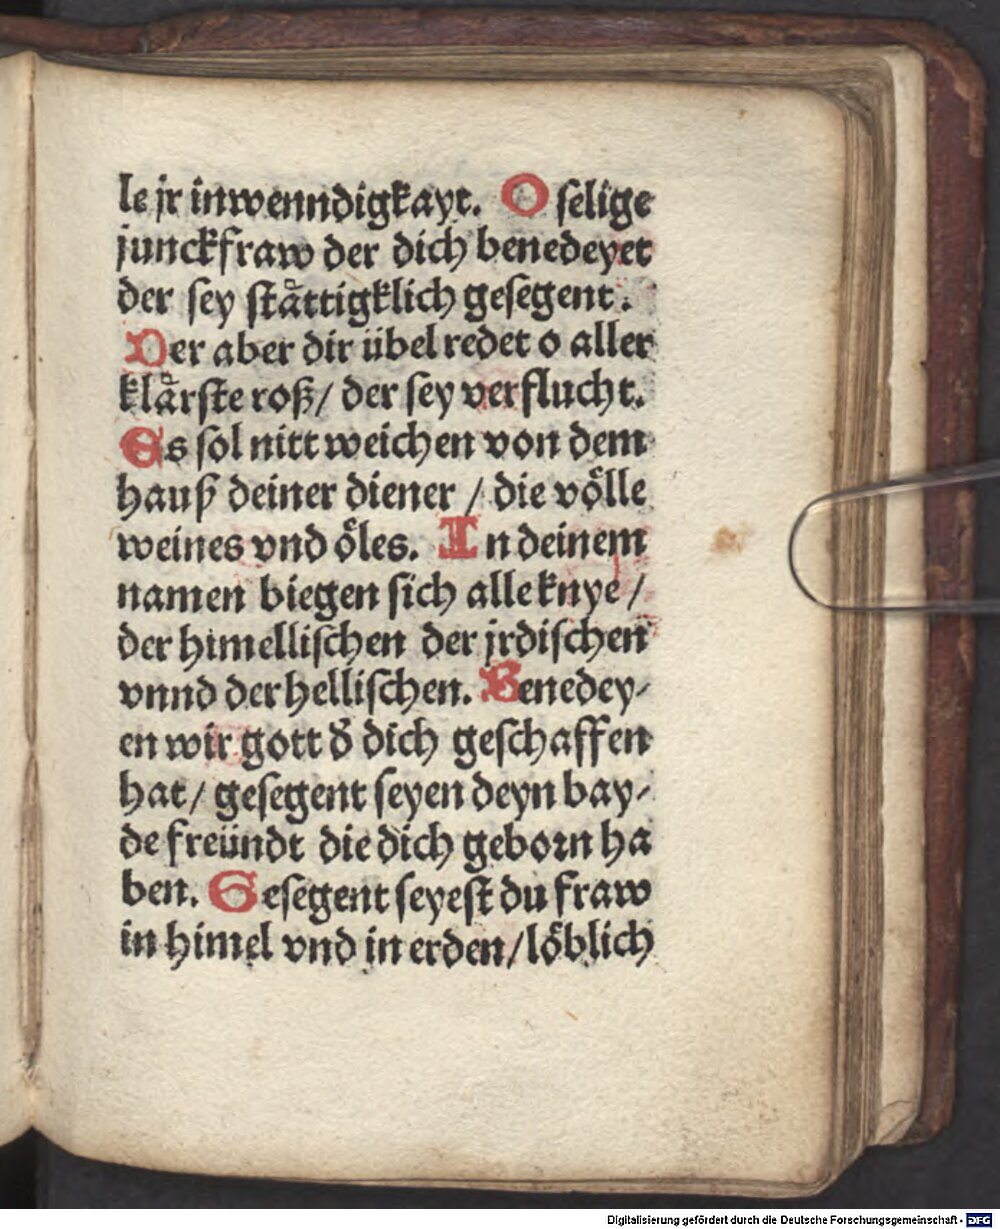 le jr inwenndigkayt. O selige
junckfraw der dich benedeyet
der sey ståttigklich gesegent.
Der aber dir übel redet o aller
klårste roß/ der sey verflucht.
Es sol nitt weichen von dem
hauß deiner diener / die völle
weines vnd öles. In deinem
namen biegen sich alle knye /
der himellischen der jrdischen
vnnd der hellischen. Benedey-
en wir gott d̄ dich geschaffen
hat/ gesegent seyen deyn bay-
de freündt die dich geborn ha
ben. Gesegent seyest du fraw
in himel vnd in erden/ löblich
Digitalisierung gefördert durch die Deutsche Forschungsgemeinschaft - DFG